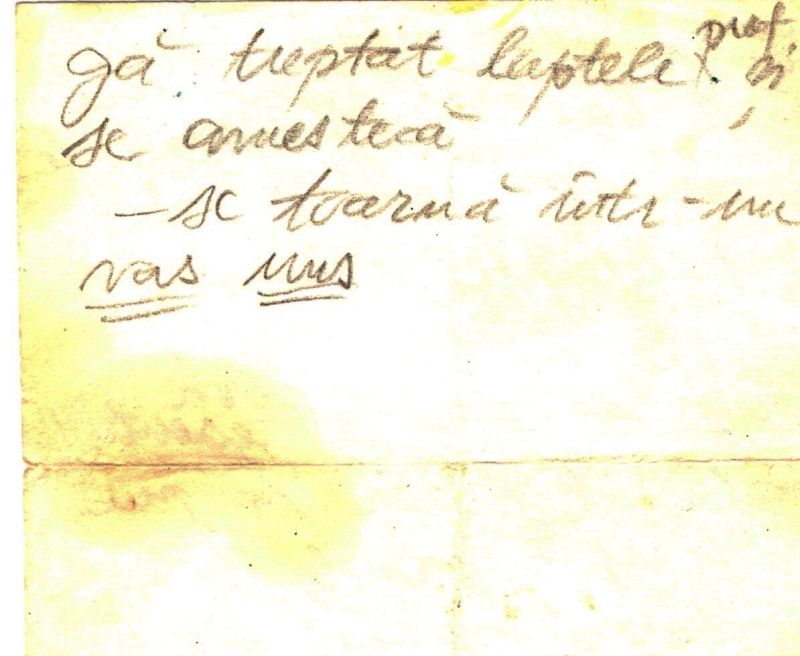 gă treptat laptele praf și
se amestecă
– se toarnă într-un
vas uns